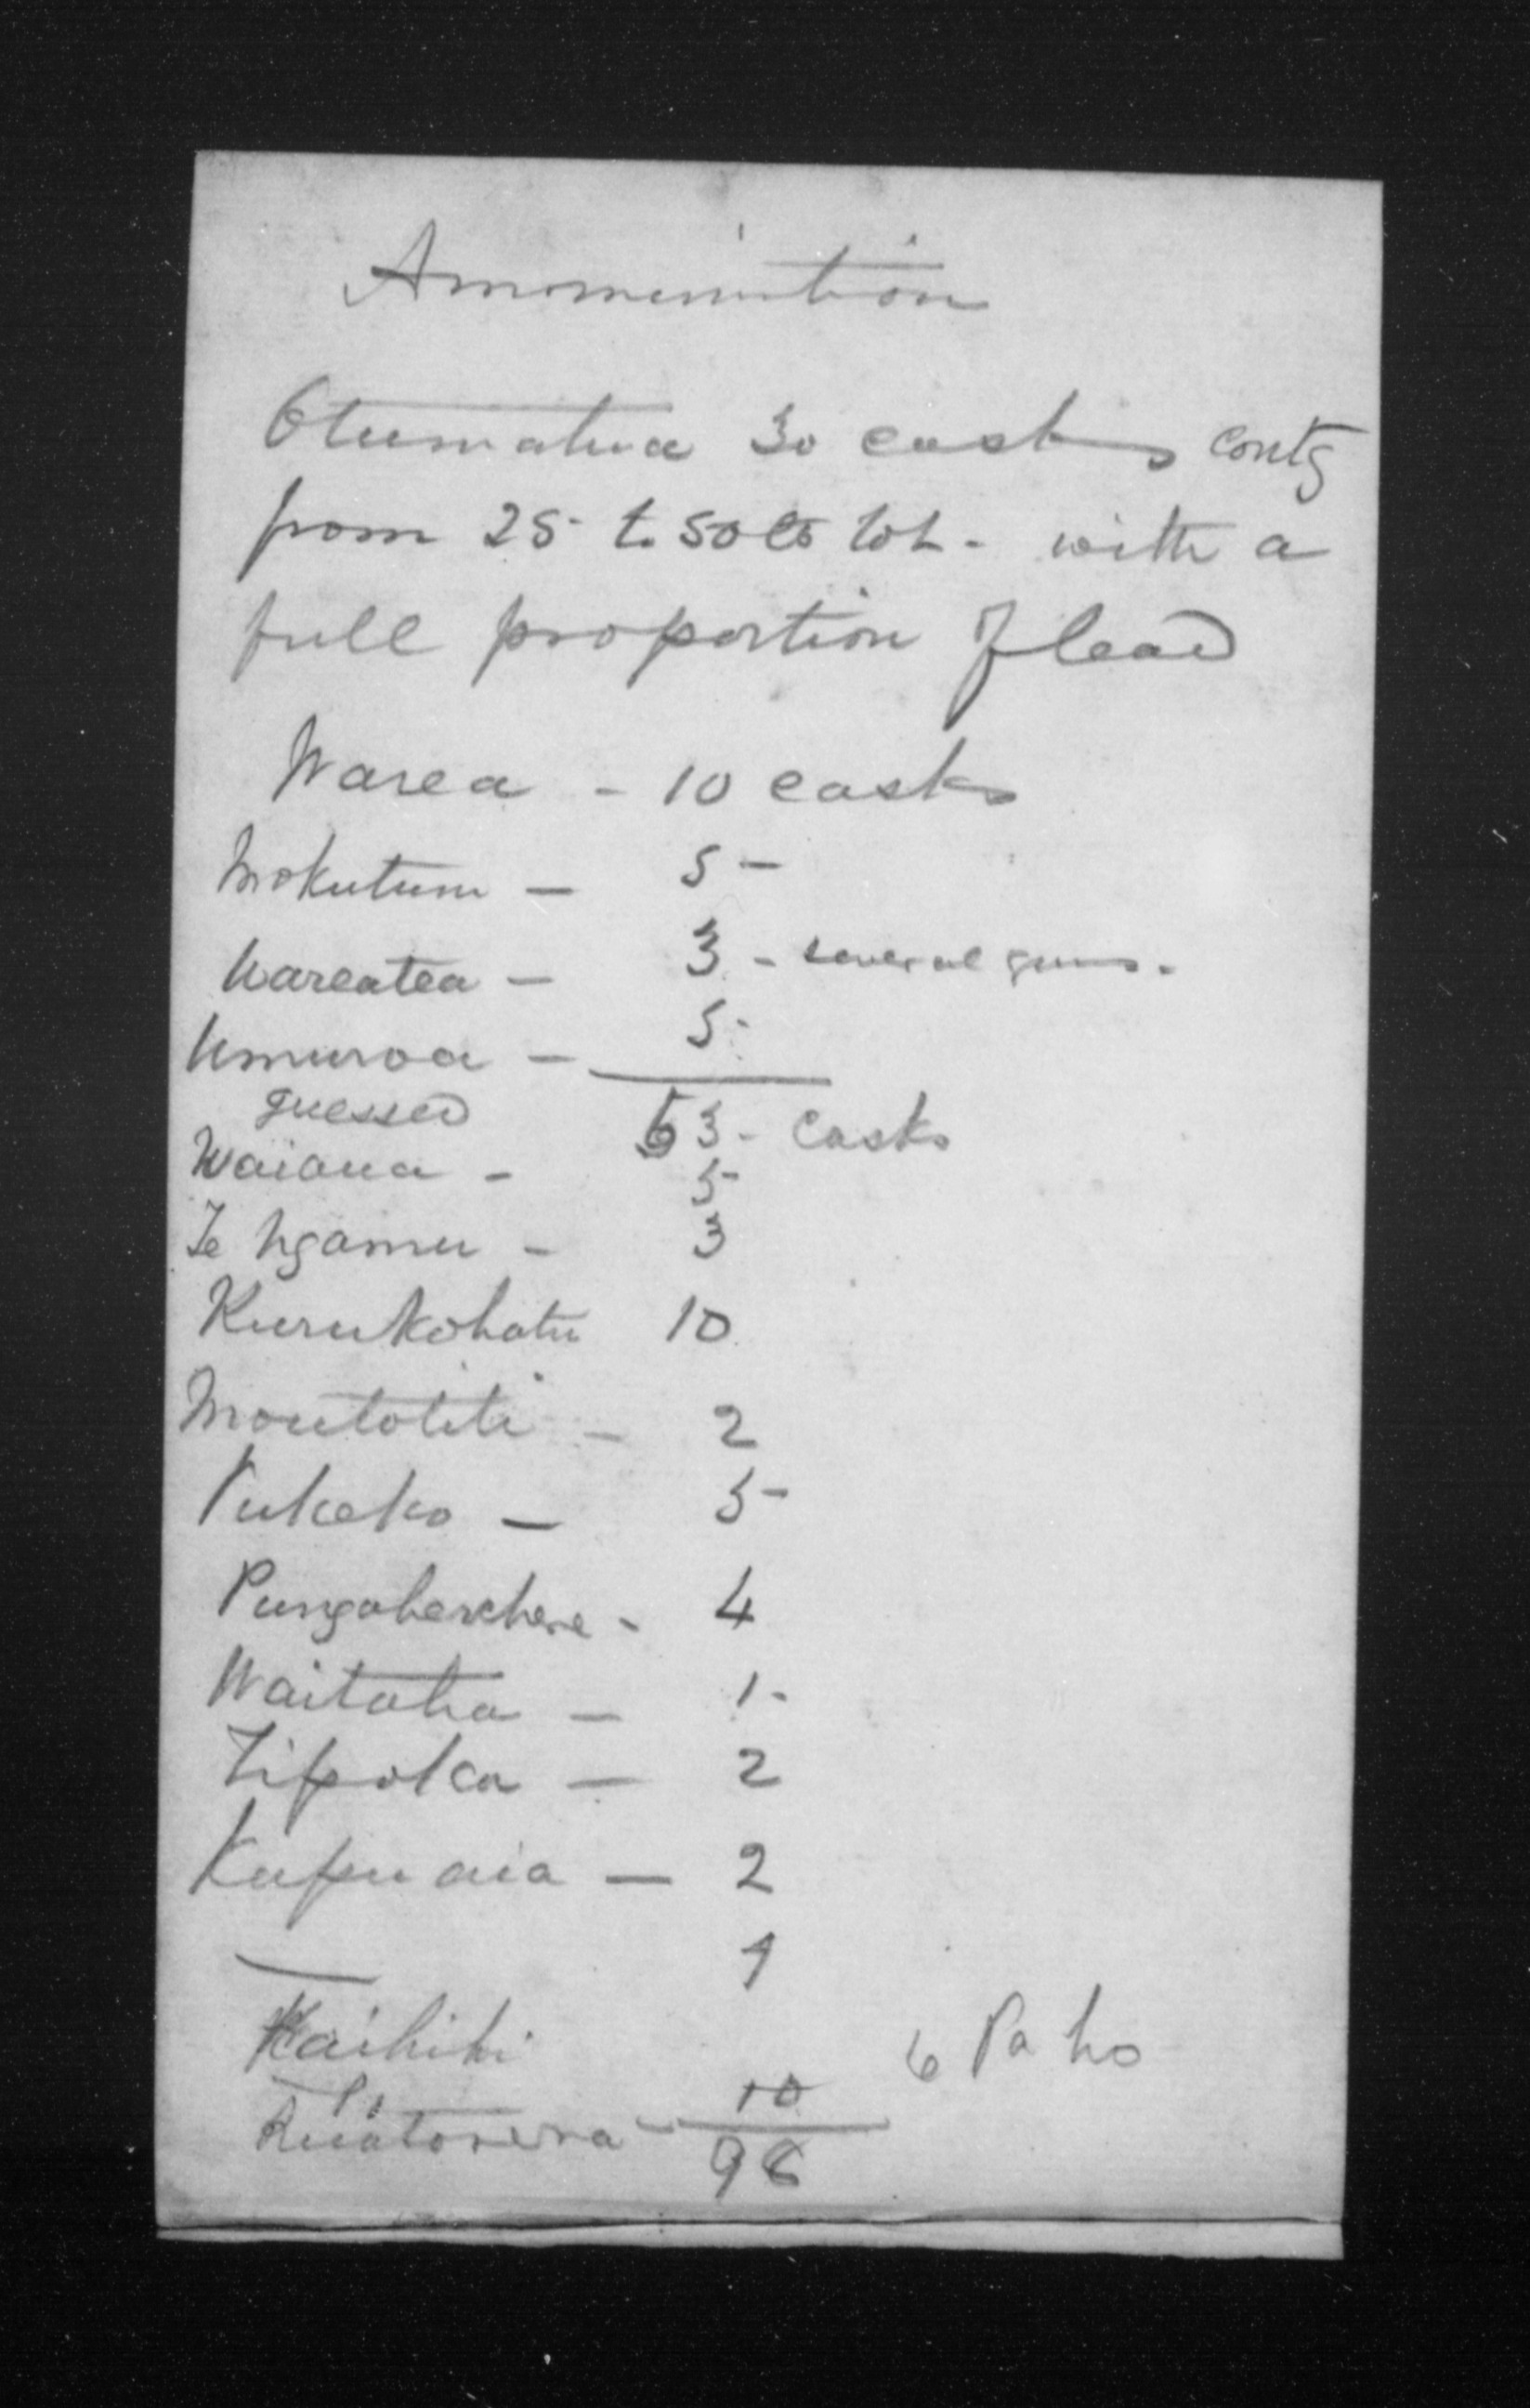 Ammunition
Otumatua 30 casks contg
from 25 to 50 lb wt - with a
full proportion of lead
Warea - 10 casks
Mokutum - 5 -
Wareatea - 3 - several guns.
Umuroa - 5 -
guessed 53 - casks
Waiaua - 5 -
Te Ngamu - 3
Kurukohatu 10
Moutoliti - 2
Pukeko - 5 -
Pungaherehere - 4
Waitaha - 1 -
Tipoka - 2
Kapuaia - 2
1
Kaihihi
6 Paho
10
98